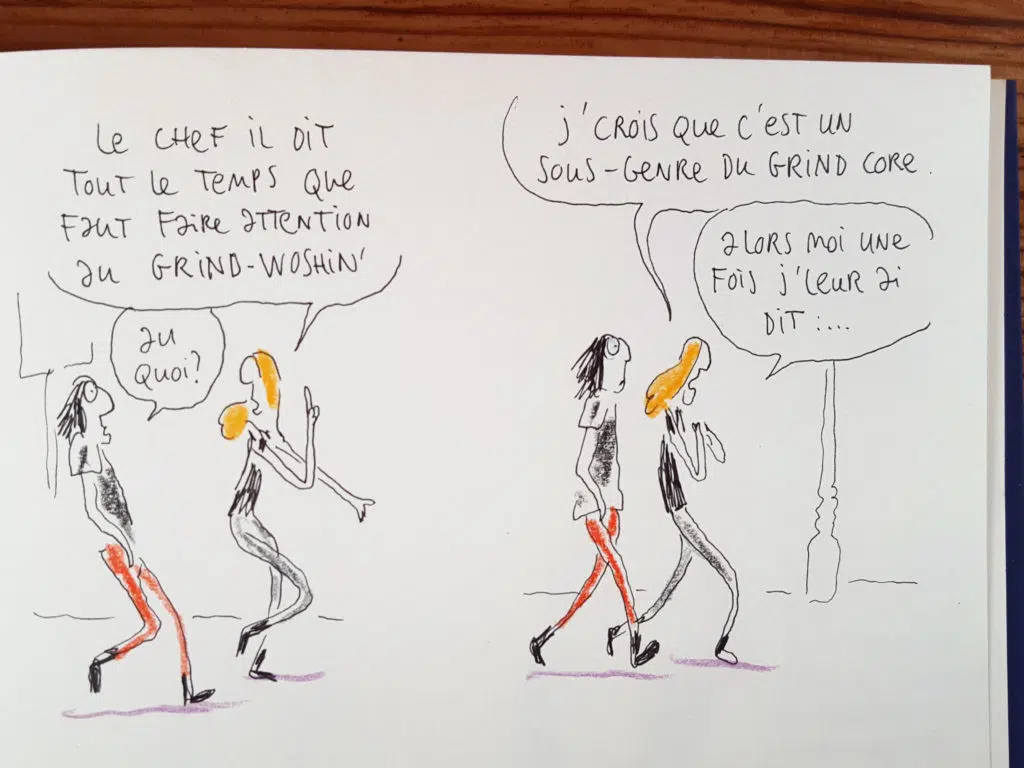 Le CHeF iL DiT
TOUT Le TeMPS Que
FauT FaiRe aTTeNTiON
au GRiND-WOSHiN'
au
QuOi?
j'CROiS Que C'eST UN
SOUS-GeNRe DU GRiND CORe.
aLORS MOi UNe
FOiS j'LeuR ai
DiT :...